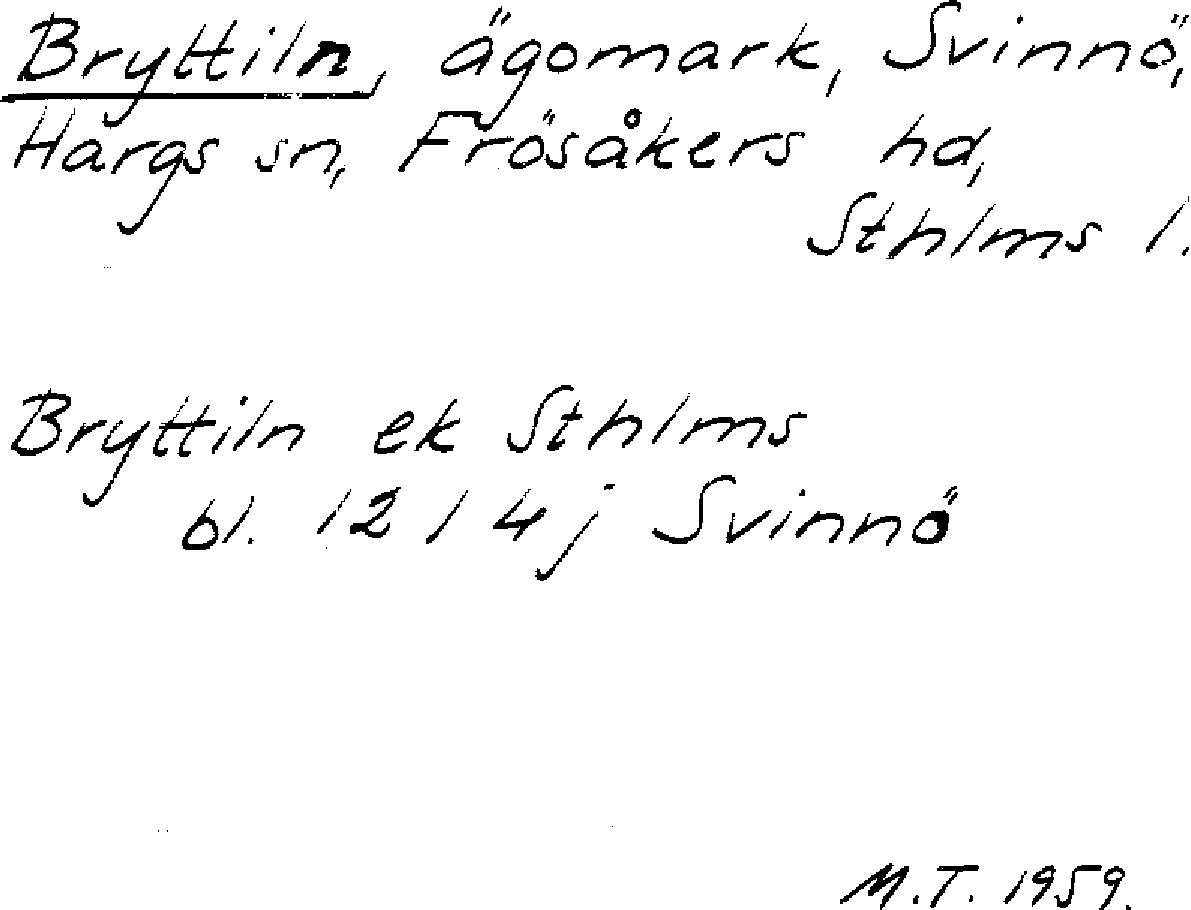 Bryttiln, ägomark, Svinnö,
Hargs sn, Frösåkers hd,
Sthlms l.
Bryttiln ek Sthlms
bl. 12 1 4j Svinnö
M.T. 1959.